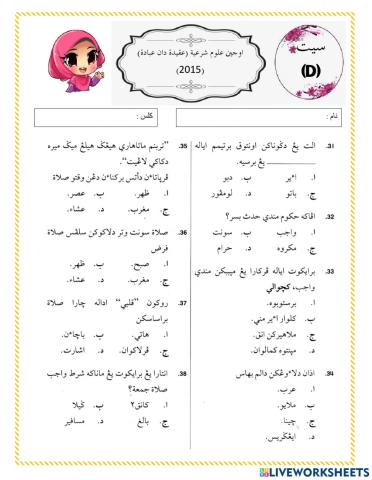 سيت
(D)
اوجين علوم شرعية (عقيدة دان عبادة)
(2015)
نام :
كلس :
31. الت يڠ دݢوناكن اونتوق برتيمم اياله
ـــــــــــ يڠ برسيه.
ا. اءير ب. دبو
ج. باتو د. لومڤور
32. اڤاكه حكوم مندي حدث بسر؟
ا. واجب ب. سونت
ج. مكروه د. حرام
33. برايكوت اياله ڤركارا يڠ مببكن مندي
واجب، كچوالي
ا. برستوبوه.
ب. كلوار اءير مني.
ج. ملاهيركن انق.
د. مڽنتوه كمالوان.
34. اذان دلاءوڠكن دالم بهاس
ا. عرب.
ب. ملايو.
ج. چينا.
د. ايڠݢريس.
35. "تربنم ماتاهاري هيڠݢ هيلڠ ميݢ ميره
دكاكي لاڠيت".
ڤرياتاءن دأتس بركتاءن دڠن وقتو صلاة
ا. ظهر. ب. عصر.
ج. مغرب. د. عشاء.
36. صلاة سونت وتر دلاكوكن سلڤس صلاة
فرض
ا. صبح. ب. ظهر.
ج. مغرب. د. عشاء.
37. روكون "قلبي" اداله چارا صلاة
براساسكن
ا. هاتي. ب. باچاءن.
ج. ڤرلاكوان. د. اشارت.
38. انتارا يڠ برايكوت يڠ ماناكه شرط واجب
صلاة جمعة؟
ا. كانق٢ ب. ݢيلا
ج. بالغ د. مسافير
LIVEWORKSHEETS